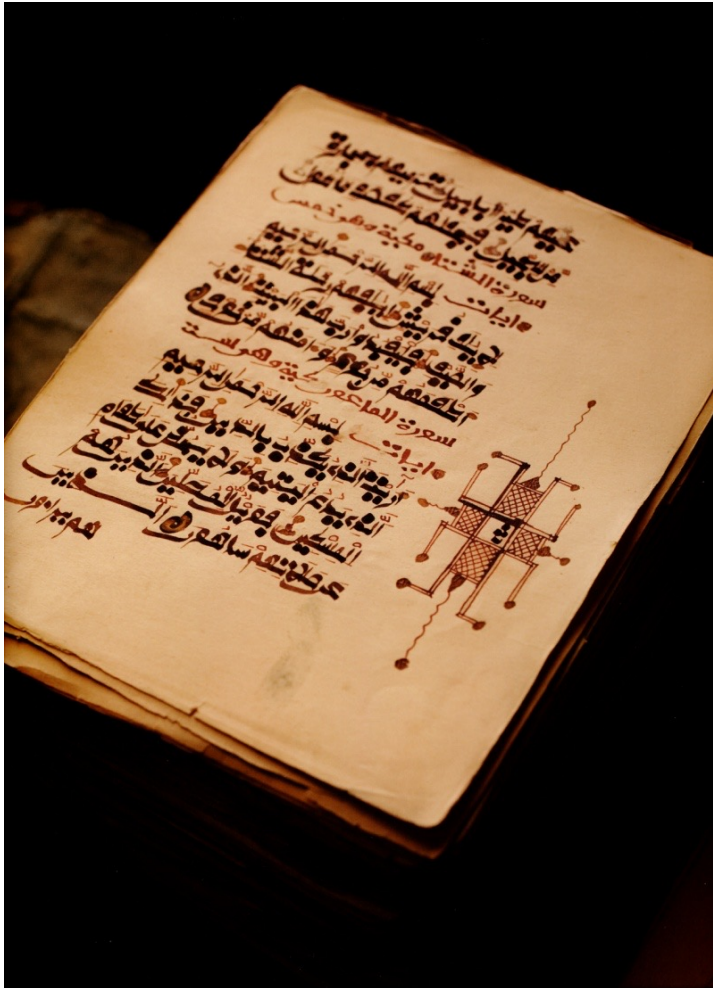 عليهم طيرا ابابيل ترميهم بحجارة
من سجيل فجعلهم كعصف ماكول
سورة الشتاء مكية وهي خمس
ءايات بسم الله الرحمن الرحيم
لإيلف قريش إيلفهم رحلة الشتاء
والصيف فليعبدوا رب هذا البيت الذي
أطعمهم من جوع وءامنهم من خوف
سورة الماعون مكية وهي ستة
ءايات بسم الله الرحمن الرحيم
أرءيت الذي يكذب بالدين فذلك
الذي يدع اليتيم ولا يحض على طعام
المسكين فويل للمصلين الذين هم
عن صلاتهم ساهون الذين
هم يراءون